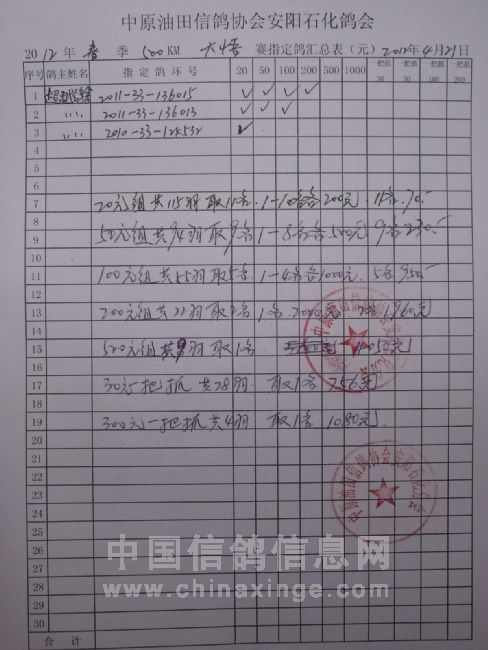 中原油田信鸽协会安阳石化鸽会
2012年春季 100KM 大悟 赛指定鸽汇总表（元）2012年4月21日
序号 鸽主姓名 指定鸽环号 20 50 100 200 500 1000 一把抓30 一把抓50 一把抓100 一把抓200
1 2011-33-136015 ✓ ✓ ✓ ✓
2 〃 2011-33-136013 ✓ ✓ ✓
3 〃 2010-33-124532 ✓
4
5
6
7 20元组共115羽取11名 1-10名各200元 11名70.-
8
9 50元组共94羽取9名 1-8名各500元 9名230.-
10
11 100元组共55羽取5名 1-4名各1000元 5名950.-
12
13 200元组共22羽取2名 1名2000元 2名1960元
14
15 500元组共9羽取1名 4050元
16
17 30元一把抓 共28羽 取1名 756元
18
19 300元一把抓共4羽 取1名 1080元
20
21
22
23
24
25
26
27
28
29
30
合计
中原油田信鸽协会安阳石化鸽会
中原油田信鸽协会安阳石化鸽会
中国信鸽信息网
www.chinaxinge.com